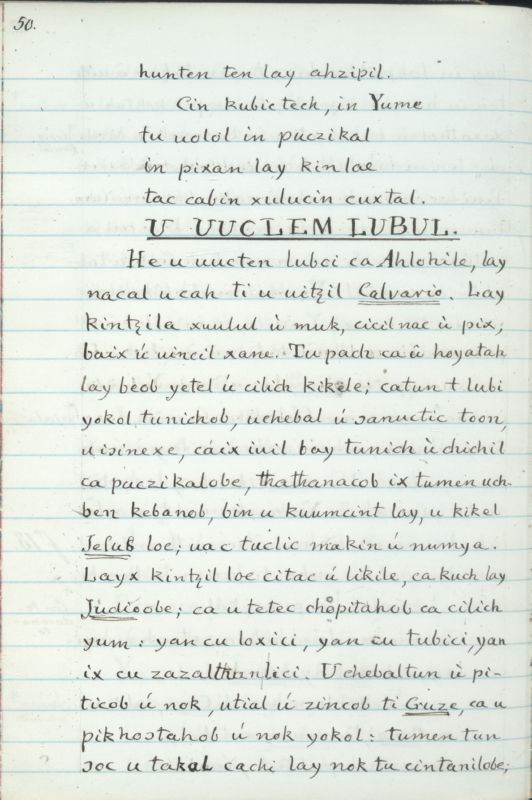 50.
hunten ten lay ahzipil.
Cin kubictech, in Yume
tu uolol in puczikal
in pixan lay kinlae
tac cabin xulucin cuxtal.
U UUCLEM LUBUL.
He u uucten lubci ca Ahlohile, lay
nacal u cah ti u uitzil Calvario. Lay
kintzila xuulul ù muk, cicilnac ù pix,
baix ú uincil xane. Tu pach ca û hoyatah
lay beob yetel ú cilich kikele; catun t lubi
yokol tunichob, uchebal ú ɔanuctic toon,
u iɔinexe, cáix iuil bay tunich ù chichil
ca puczikalobe, thathanacob ix tumen uch-
ben kebanob, bin u kuumcint lay, u kikel
Jesus loe; ua c tuclic makin ú numya.
Layx kintzil loe citac ú likile, ca kuch lay
Judioobe; ca u tetec chopitahob ca cilich
yum: yan cu loxici, yan cu tubici, yan
ix cu zazalthanlici. Uchebaltun ù pi-
ticob ú nok, utial ú zincob ti Cruze, ca u
pikhoɔtahob ú nok yokol: tumen tun
ɔoc u takal cachi lay nok tu cintanilobe;